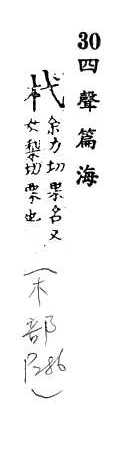 30四聲篇海
杙余力切果名又
女梨切栗也
(木部P286)